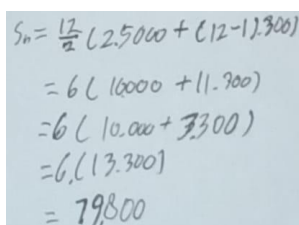 Sn = 12/2 (2.5000 + (12-1).300)
= 6 ( 10000 + 11.300)
= 6 ( 10.000 + 3300)
= 6.(13.300)
= 79.800